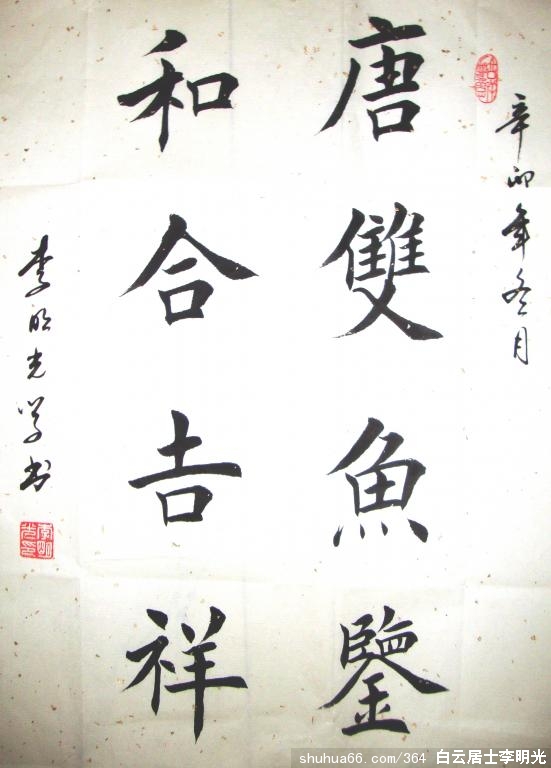 辛卯年冬月
唐雙魚鑒
和合吉祥
李明光学书
李明光印
shuhua66.com/364 白云居士李明光